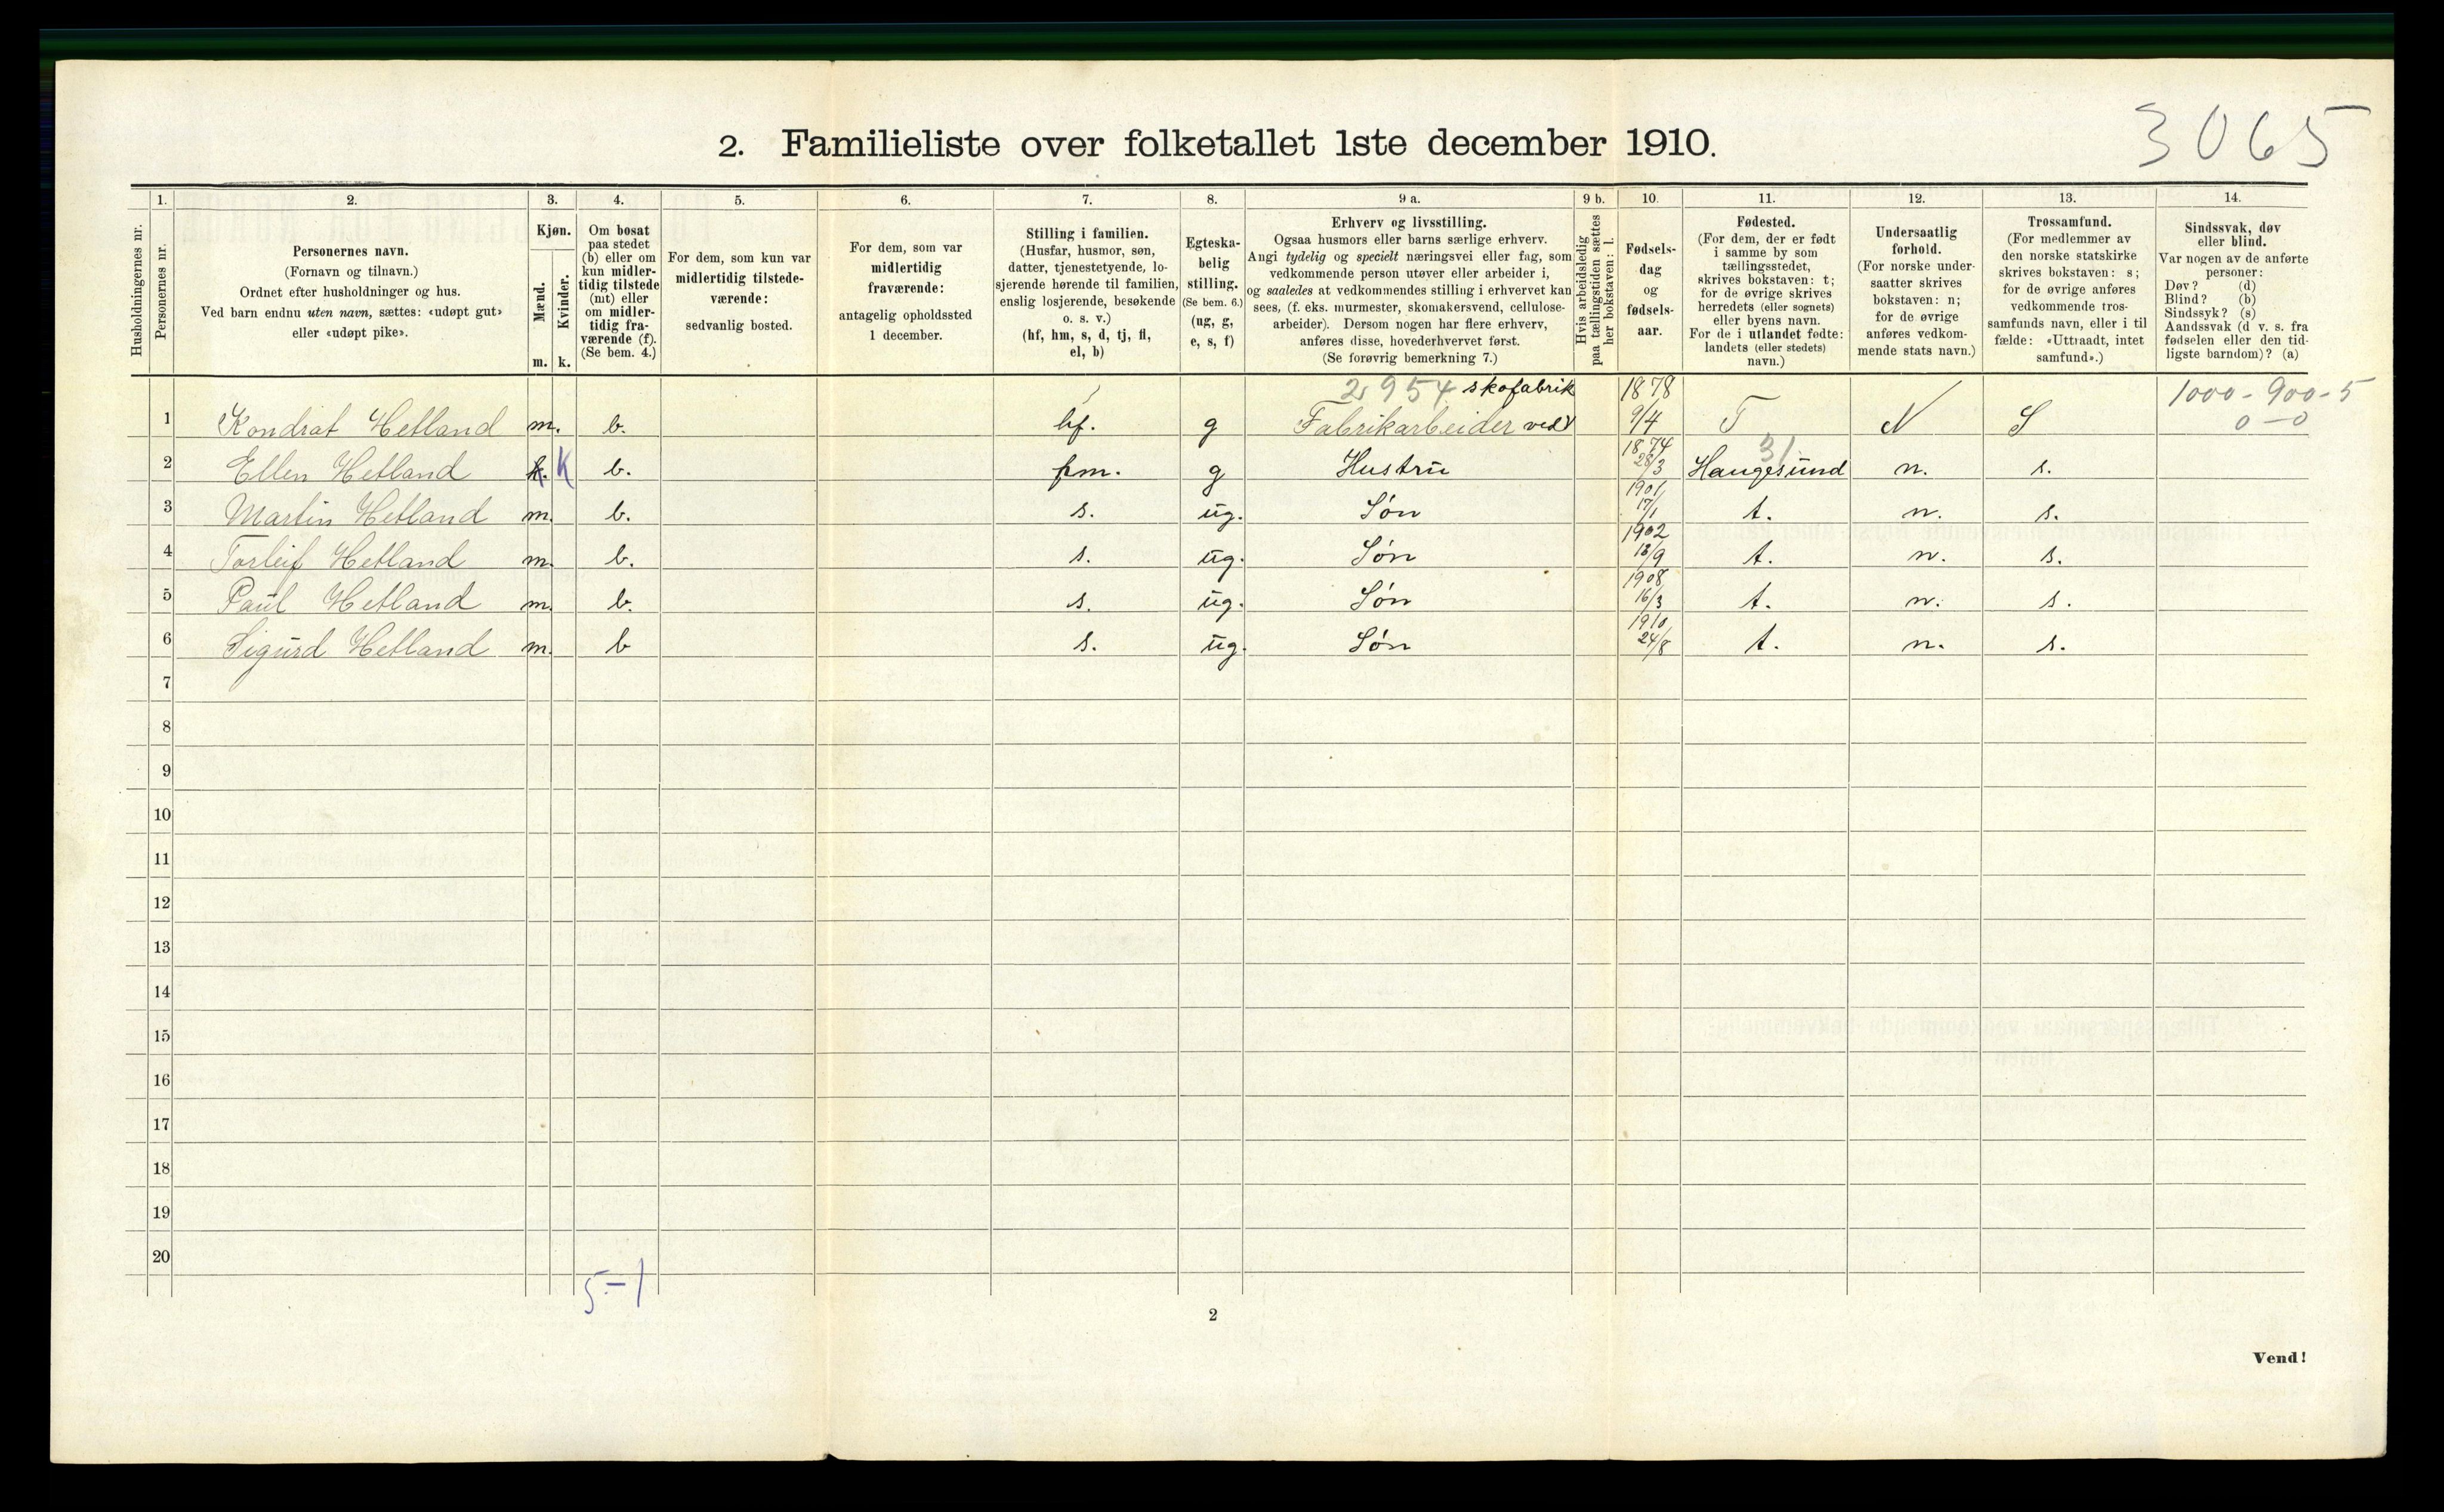 3065
2. Familieliste over folketallet 1ste december 1910.
1. 2. 3. 4. 5. 6. 7. 8. 9 a. 9 b. 10. 11. 12. 13. 14.
Husholdningernes nr.
Personernes nr.
Personernes navn.
(Fornavn og tilnavn.)
Ordnet efter husholdninger og hus.
Ved barn endnu uten navn, sættes: «udøpt gut»
eller «udøpt pike».
Kjøn.
Mænd.
m.
Kvinder.
k.
Om bosat
paa stedet
(b) eller om
kun midler-
tidig tilstede
(mt) eller
om midler-
tidig fra-
værende (f).
(Se bem. 4.)
For dem, som kun var
midlertidig tilstede-
værende:
sedvanlig bosted.
For dem, som var
midlertidig
fraværende:
antagelig opholdssted
1 december.
Stilling i familien.
(Husfar, husmor, søn,
datter, tjenestetyende, lo-
sjerende hørende til familien,
enslig losjerende, besøkende
o. s. v.)
(hf, hm, s, d, tj, fl,
el, b)
Egteska-
belig
stilling.
(Se bem. 6.)
(ug, g,
e, s, f)
Erhverv og livsstilling.
Ogsaa husmors eller barns særlige erhverv.
Angi tydelig og specielt næringsvei eller fag, som
vedkommende person utøver eller arbeider i,
og saaledes at vedkommendes stilling i erhvervet kan
sees, (f. eks. murmester, skomakersvend, cellulose-
arbeider). Dersom nogen har flere erhverv,
anføres disse, hovederhvervet først.
(Se forøvrig bemerkning 7.)
Hvis arbeidsledig
paa tællingstiden sættes
her bokstaven: l.
Fødsels-
dag
og
fødsels-
aar.
Fødested.
(For dem, der er født
i samme by som
tællingsstedet,
skrives bokstaven: t;
for de øvrige skrives
herredets (eller sognets)
eller byens navn.
For de i utlandet fødte:
landets (eller stedets)
navn.)
Undersaatlig
forhold.
(For norske under-
saatter skrives
bokstaven: n;
for de øvrige
anføres vedkom-
mende stats navn.)
Trossamfund.
(For medlemmer av
den norske statskirke
skrives bokstaven: s;
for de øvrige anføres
vedkommende tros-
samfunds navn, eller i til
fælde: «Uttraadt, intet
samfund».)
Sindssvak, døv
eller blind.
Var nogen av de anførte
personer:
Døv? (d)
Blind? (b)
Sindssyk? (s)
Aandssvak (d v. s. fra
fødselen eller den tid-
ligste barndom)? (a)
2954 skofabrik 1878 1000 - 900 - 5
1 Kondrat Hetland m. b. hf. g Fabrikarbeider ved 9/4 T N S 0 - 0
1874 31
2 Ellen Hetland k. K b. hm. g Hustru 28/3 Haugesund n. s.
1901
3 Martin Hetland m. b. s. ug. Søn 17/1 t. n. s.
1902
4 Torleif Hetland m. b. s. ug. Søn 18/9 t. n. s.
1908
5 Paul Hetland m. b. s. ug. Søn 16/3 t. n. s.
1910
6 Sigurd Hetland m. b s. ug. Søn 24/8 t. n. s.
7
8
9
10
11
12
13
14
15
16
17
18
19
20
5 - 1
2
Vend!